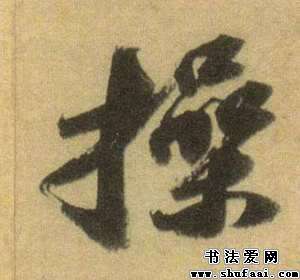 操
书法爱网
www.shufaai.com